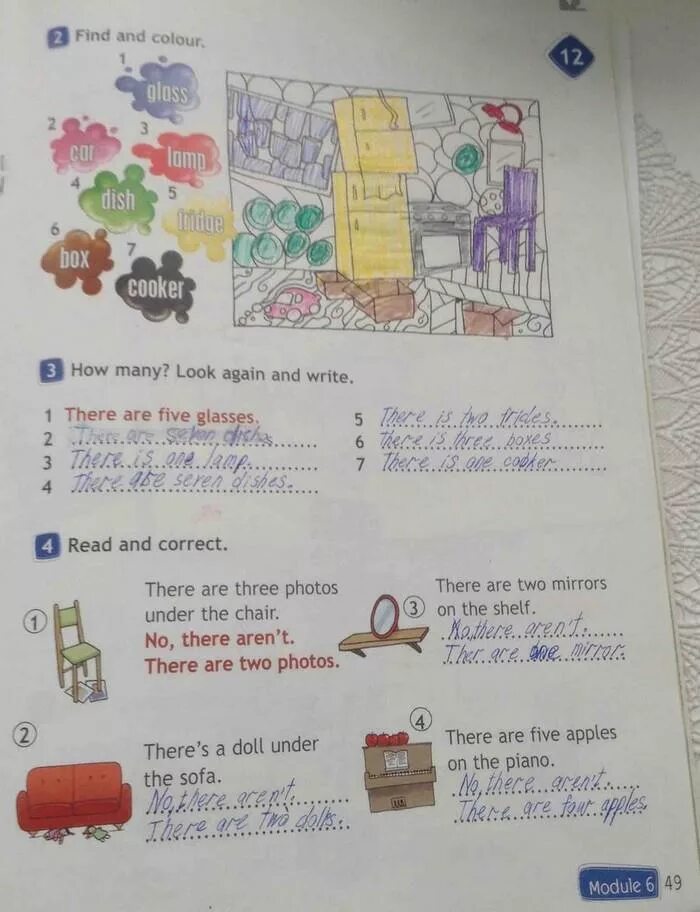 2 Find and colour.
12
1
glass
2
car
3
lamp
4
dish
5
fridge
6
box
7
cooker
3 How many? Look again and write.
1 There are five glasses.
2 There are seven dishs
3 There is one lamp.
4 There are seven dishes.
5 There is two frides.
6 there is three boxes
7 There is one cooker
4 Read and correct.
1
There are three photos
under the chair.
No, there aren't.
There are two photos.
2
There's a doll under
the sofa.
No, there aren't.
There are two dolls.
3
There are two mirrors
on the shelf.
No, there aren't.
Ther are one mirror.
4
There are five apples
on the piano.
No, there aren't.
There are four apples
Module 6 49